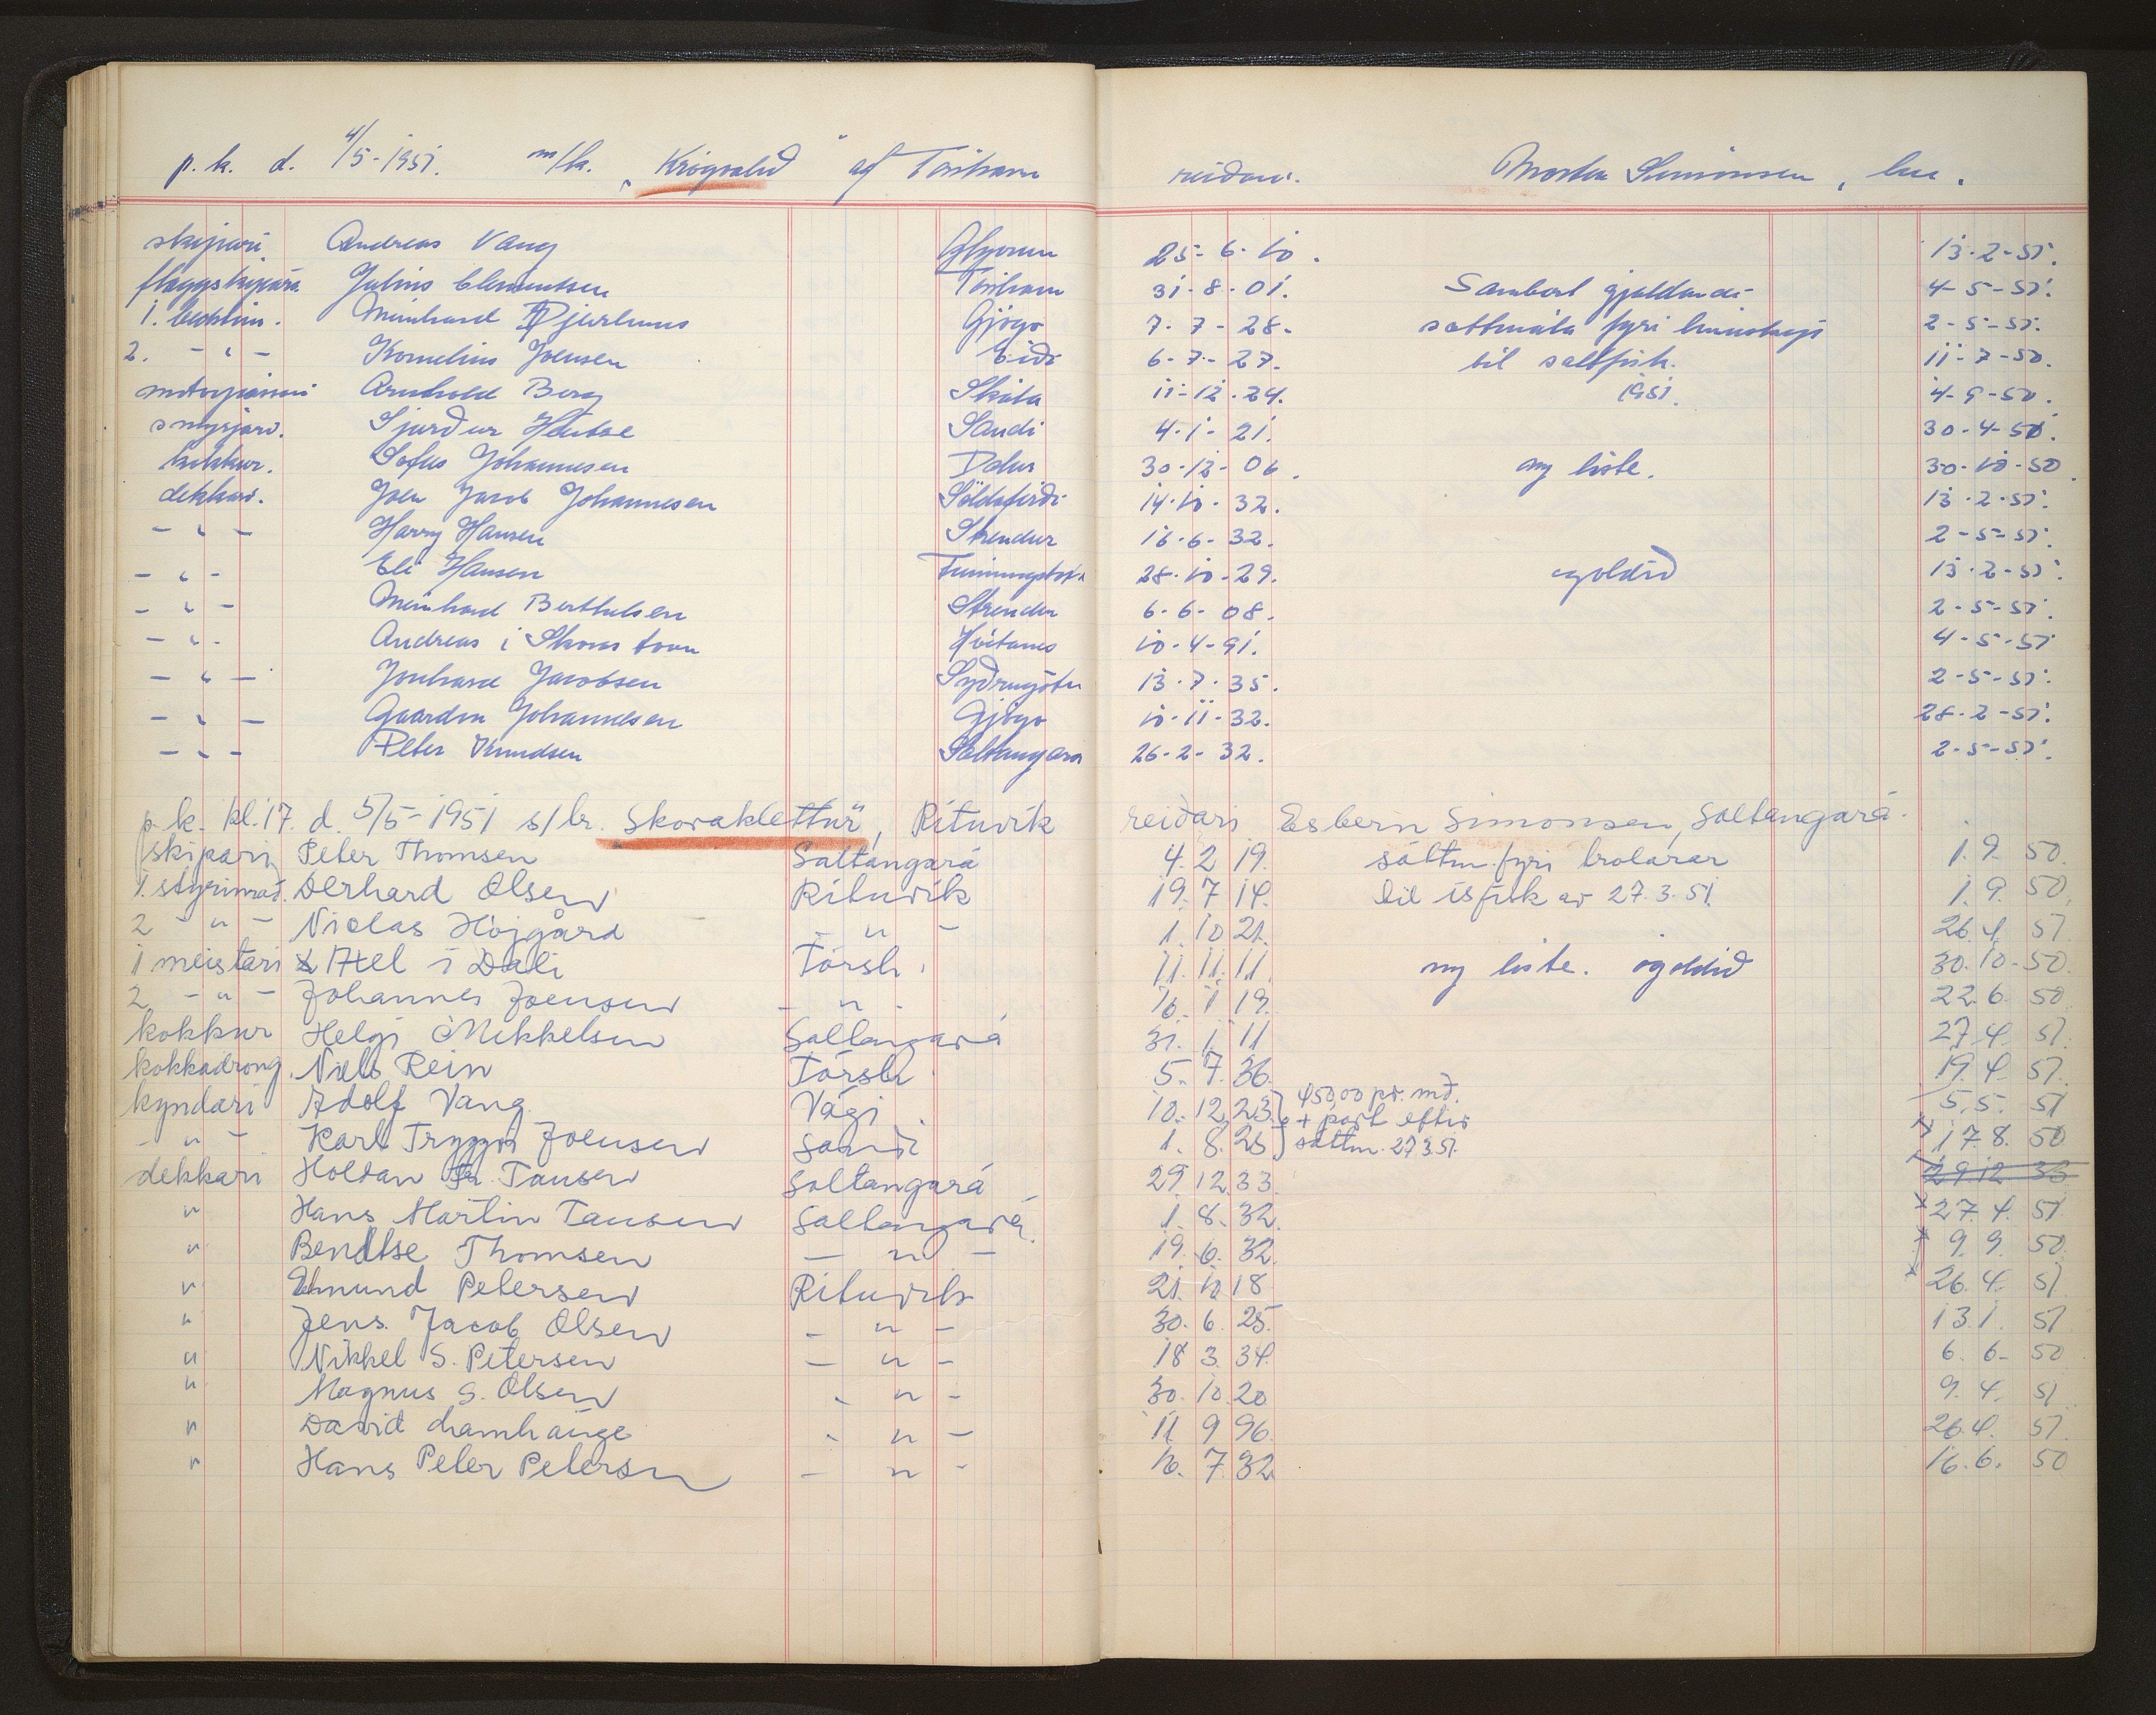 p. k. d. 4/5-1951. m/k. „Krigsalid" af Tórshavn reiðari. Morten Simonsen, hér.
skipari. Andreas Vang 25-6-10. 13-2-51.
flaggskipara Julius Clementsen Tórshavn 31-8-01. Sambært gjaldandi 4-5-51.
1. Meinhard Djurhuus Gjógv 7-7-28. sáttmála fyri línuskip 2-5-51.
2. -"- Kornelius Joensen Eiði 6-7-27. til saltfisk. 11-7-50.
motorpassari Arnhold Berg Skála 11-12-24. 1951. 4-9-50.
smyrjari. Sjúrður Sandi 4-1-21. 30-4-51.
kokkur. Sofus Johannesen Dalur 30-12-06. ny liste. 30-10-50.
dekkari. Joen Jacob Johannesen Söldafirði 14-10-32. 13-2-51.
-"- Harry Hansen Strendur 16-6-32. 2-5-51.
-"- Eli Hansen 28-10-29. ógoldið 13-2-51.
-"- Meinhard Berthelsen Strendur 6-6-08. 2-5-51.
-"- Andreas í Skorastovu Hvítanes 10-4-91. 4-5-51
-"- Jonhard Jacobsen Syðrugötu 13-7-35. 2-5-51.
-"- Gaardon Johannesen Gjógv 10-11-32. 28-2-51.
-"- Peter Knudsen Saltangará 26-2-32. 2-5-51.
p. k. kl. 17. d. 5/5-1951 s/tr. „Skoraklettur", Rituvík reiðari Esbern Simonsen, Saltangará.
skipari Peter Thomsen Saltangará 4. 2 19. sáttm. fyri trolarar 1. 9. 50.
1. styrimað. Derhard Olsen Rituvík 19. 7 14. til ísfisk av 27.3.51. 1. 9. 50.
2 -"- Niclas Højgård -"- 1. 10 21. 26. 4. 51
1 meistari Axel í Dali Tórsh. 11. 11. 11. ny liste. ógoldið 30. 10. 50.
2. -"- Johannes Joensen -"- 16. 1 19. 22. 6. 50
kokkur Helgi Mikkelsen Saltangará 31. 1. 11 27. 4. 51.
kokkadrong. Niels Rein Tórsh. 5. 7. 36. 19. 4. 51.
kyndari Adolf Vang Vági 10. 12 23. 450,00 pr. mð. 5. 5. 51
-"- Karl Tryggvi Joensen Sandi 1. 8. 25 + part eftir sáttm. 27.3.51. 17. 8. 50
dekkari Holdan Fr. Tausen Saltangará 29 12 33. 29 12 33
" Hans Martin Tausen Saltangará. 1. 8. 32. 27. 4. 51
" Bendtse Thomsen -"- 19. 6. 32. 9. 9. 50.
" Edmund Petersen Rituvík 21. 10 18 26. 4. 51
" Jens. Jacob Olsen -"- 30. 6. 25. 13. 1. 51
" Nikkel S. Petersen -"- 18 3. 34. 6. 6. 50
" Magnus S. Olsen -"- 30. 10. 20 9. 4. 51
" David Lamhauge -"- 11 9 96. 26. 4. 51.
" Hans Peter Petersen -"- 16. 7 32 16. 6. 50